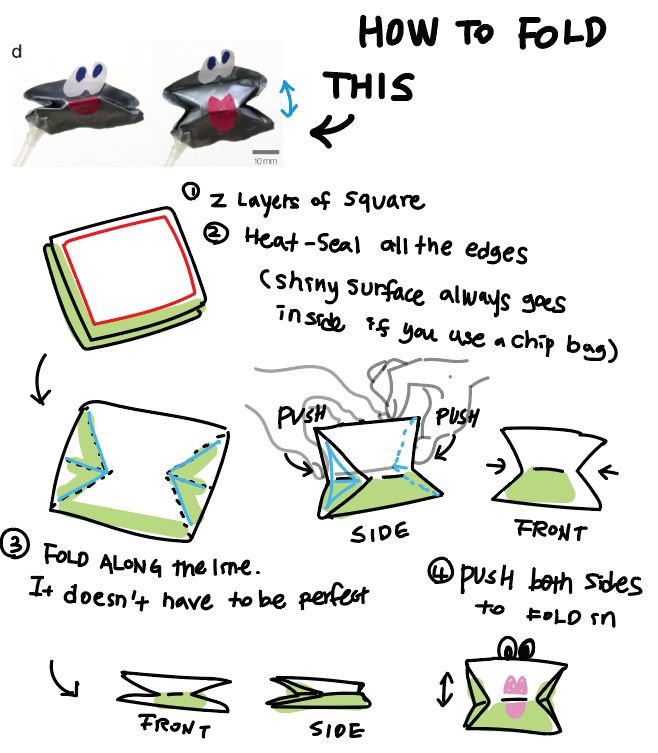 HOW TO FOLD
d
THIS
10 mm
① 2 Layers of square
② Heat-Seal all the edges
(shiny surface always goes
inside if you use a chip bag)
PUSH
PUSH
SIDE
FRONT
③ FOLD ALONG the line.
It doesn't have to be perfect
④ PUSH both sides
to FOLD in
FRONT
SIDE